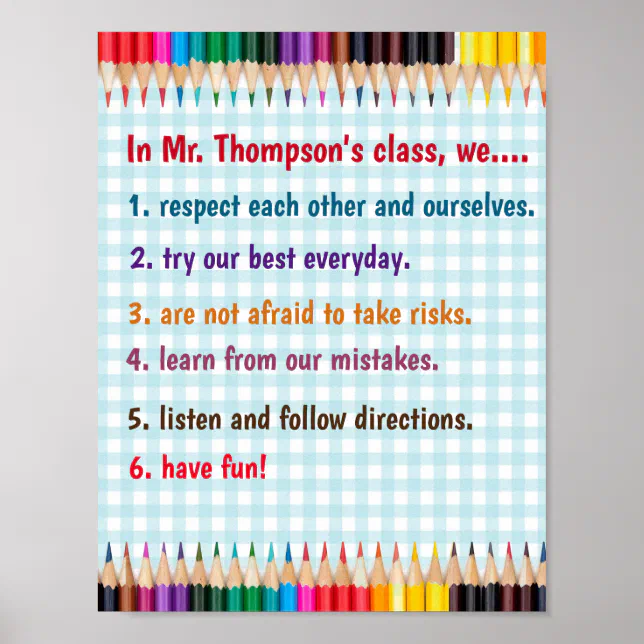 In Mr. Thompson's class, we....
1. respect each other and ourselves.
2. try our best everyday.
3. are not afraid to take risks.
4. learn from our mistakes.
5. listen and follow directions.
6. have fun!